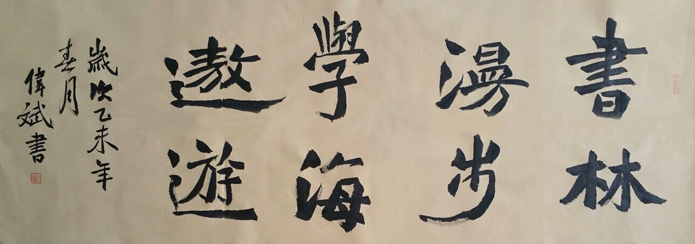 書林
漫步
學海
遨遊
歲次乙未年
春月
偉斌書